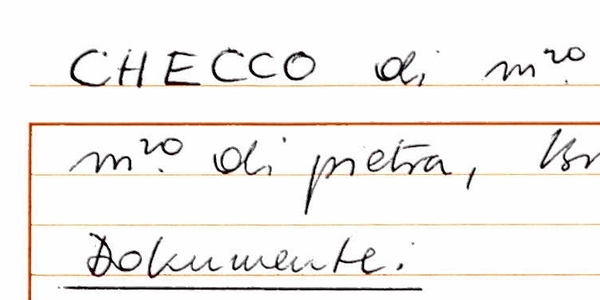 CHECCO di mro.
mro. di pietra,
Dokumente: